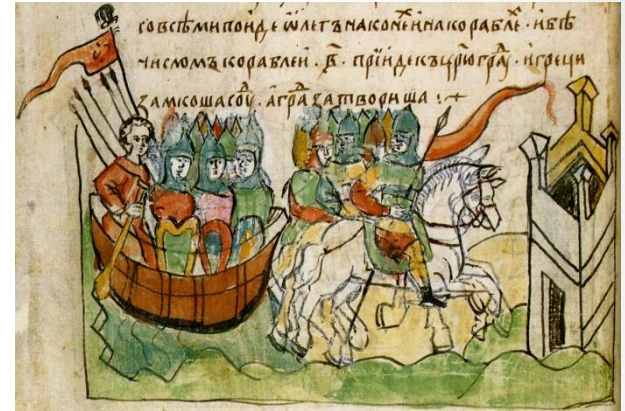 со всѣми поиде ѡлегъ на кон҃ехъ и на кораблѣ · и бѣ
числомъ кораблеи · в҃ · приидекъ цр҃юграду · и греци
замкоша соудъ · а градъ затвориша :·